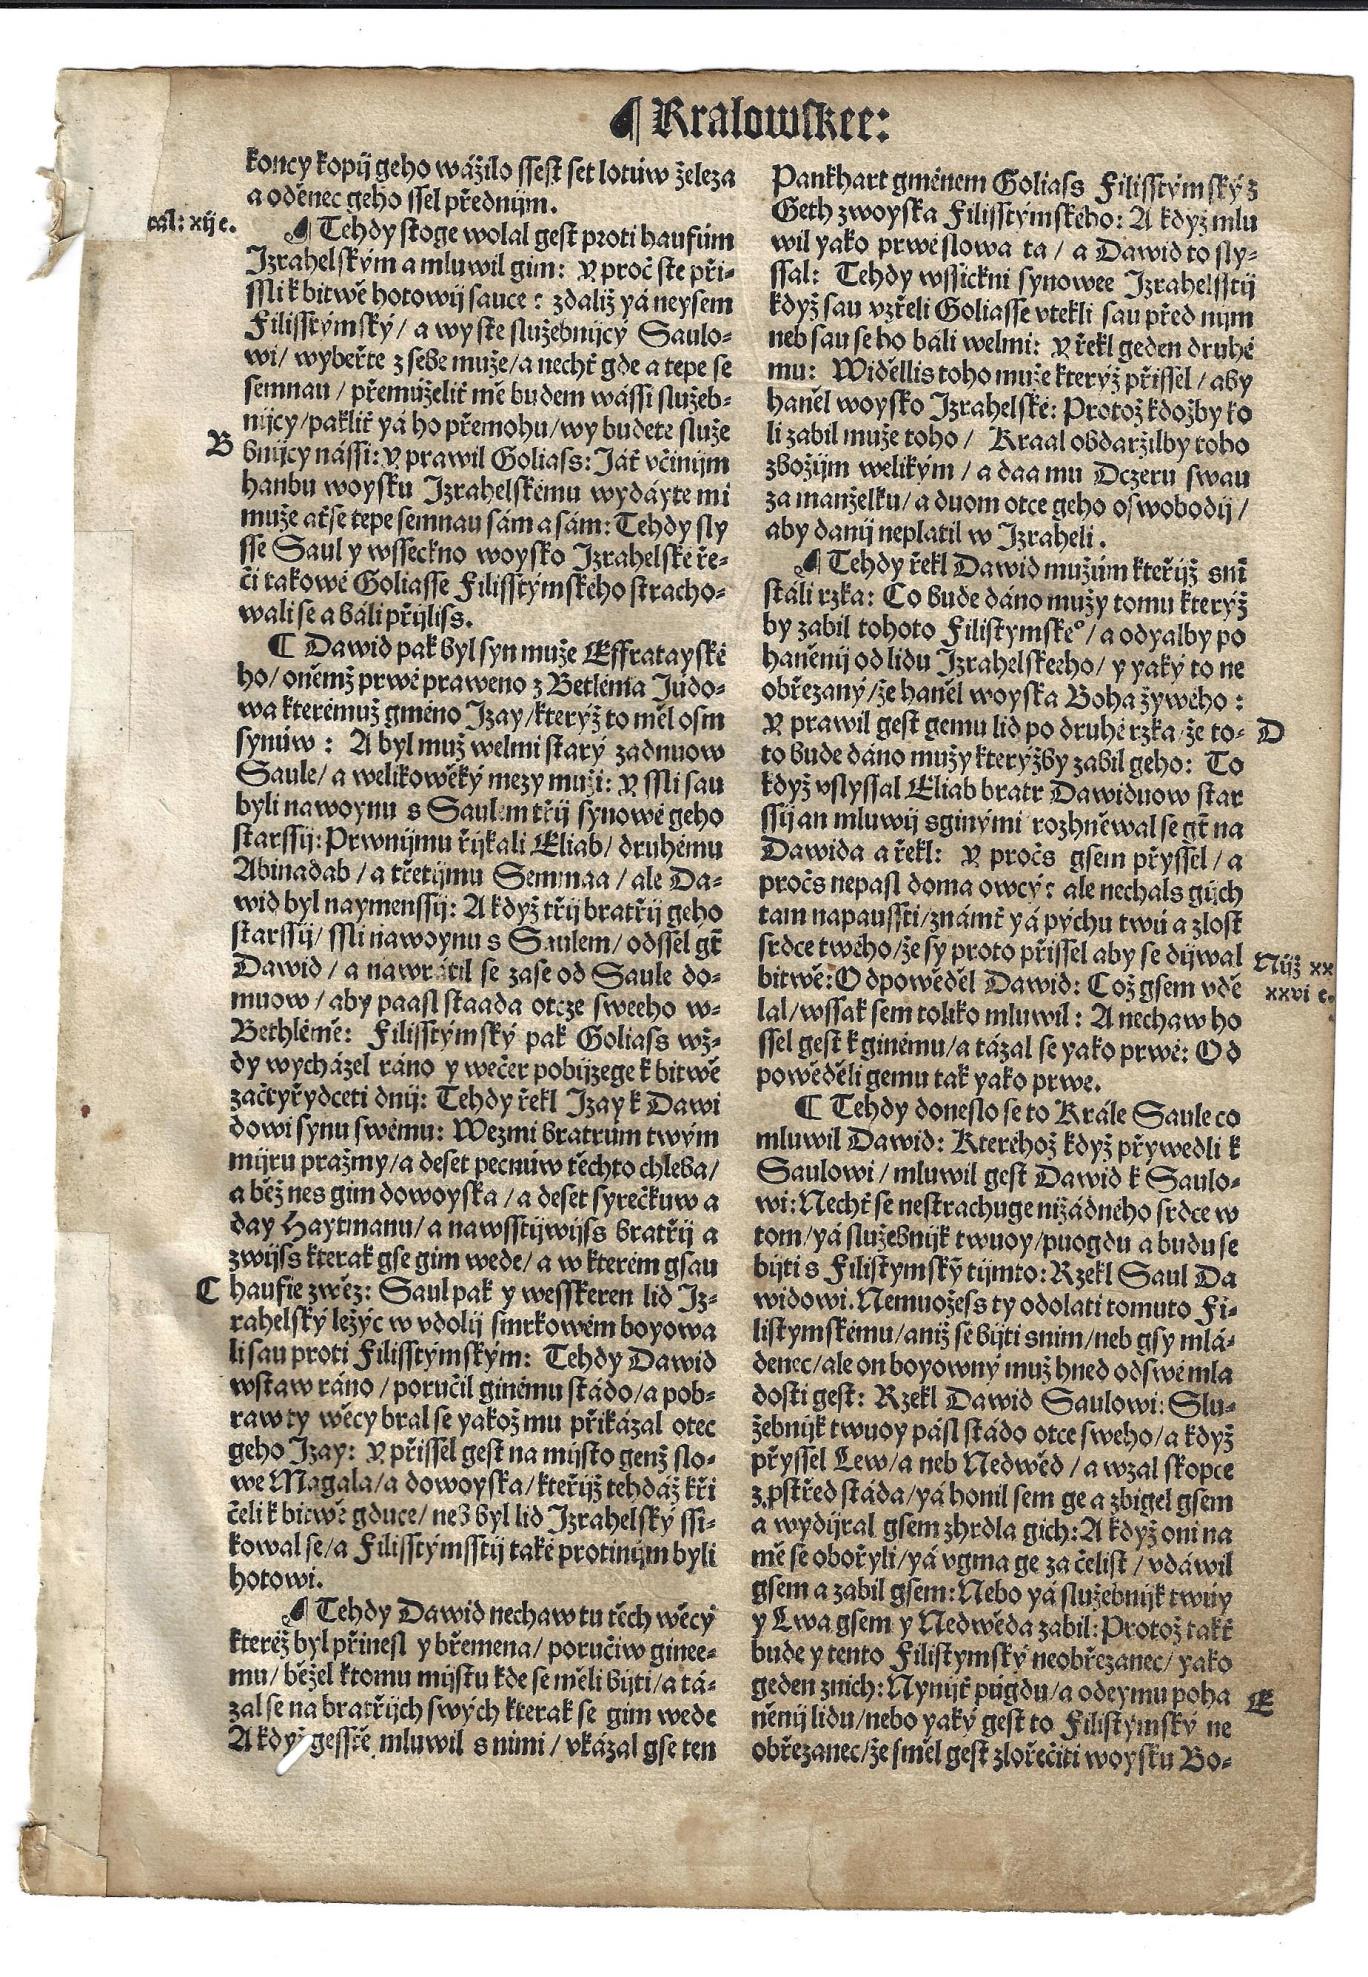 ¶ Kralowskee:
koncy kopij geho wážilo ssest set lotúw železa
a oděnec geho ssel předným.
cal: xij c.
¶ Tehdy stoge wolal gest proti haufúm
Izrahelským a mluwil gim: Y proč ste při-
ssli k bitwě hotowij sauce: zdaliž yá neysem
Filisstýmský / a wy ste služebnijcý Saulo-
wi / wybeřte z sebe muže / a nechť gde a tepe se
semnau / přemúželiť mě budem wássi služeb-
nijcy / pakliť yá ho přemohu / wy budete služe
B
bnijcy nássi: Y prawil Goliass: Jáť včinijm
hanbu woysku Izrahelskému wydáyte mi
muže ať se tepe semnau sám a sám: Tehdy sly
sse Saul y wsseckno woysko Izrahelské ře-
či takowé Goliasse Filisstýmského stracho-
wali se a báli přijliss.
¶ Dawid pak byl syn muže Effratayské
ho / oněmž prwé praweno z Betléma Júdo-
wa kterémuž gméno Izay / kterýž to měl osm
synúw: A byl muž welmi starý zadnuow
Saule / a welikowěký mezy muži: Y ssli sau
byli nawoynu s Saulem třij synowé geho
starssij: Prwnijmu řijkali Eliab / druhému
Abinadab / a třetijmu Semmaa / ale Da-
wid byl naymenssij: A když třij bratřij geho
starssij / ssli nawoynu s Saulem / odssel gt̃
Dawid / a nawrátil se zase od Saule do-
muow / aby paasl staada otcze sweeho w-
Bethlémě: Filisstýmský pak Goliass wž-
dy wycházel ráno y wečer pobijzege k bitwě
začtyřydceti dnij: Tehdy řekl Izay k Dawi
dowi synu swému: Wezmi bratrúm twým
mijru pražmy / a deset pecnúw těchto chleba /
a běž nes gim dowoyska / a deset syrečkuw a
day Haytmanu / a nawsstijwijss bratřij a
zwijss kterak gse gim wede / a w kterém gsau
C
haufie zwěz: Saul pak y wesskeren lid Iz-
rahelský ležýc w vdolij smrkowém boyowa
li sau proti Filisstýmským: Tehdy Dawid
wstaw ráno / poručil ginému stádo / a pob-
raw ty wěcy bral se yakož mu přikázal otec
geho Izay: Y přissel gest na mijsto genž slo-
we Magala / a dowoyska / kteřijž tehdáž kři
čeli k bitwě gduce / neb byl lid Izrahelský ssi-
kowal se / a Filisstýmsstij také protinijm byli
hotowi.
¶ Tehdy Dawid nechaw tu těch wěcý
kteréž byl přinesl y břemena / poručiw ginee-
mu / běžel ktomu mijstu kde se měli bijti / a tá-
zal se na bratřijch swých kterak se gim wede
A když gesstě mluwil s nimi / vkázal gse ten
Pankhart gménem Goliass Filisstýmský z
Geth zwoyska Filisstýmského: A když mlu
wil yako prwé slowa ta / a Dawid to sly-
ssal: Tehdy wssickni synowee Izrahelsstij
když sau vzřeli Goliasse vtekli sau před nijm
neb sau se ho báli welmi: Y řekl geden druhé
mu: Widěllis toho muže kterýž přissel / aby
haněl woysko Izrahelské: Protož kdožby ko
li zabil muže toho / Kraal obdaržilby toho
zbožijm welikým / a daa mu Dczeru swau
za manželku / a duom otce geho oswobodij /
aby danij neplatil w Izraheli.
¶ Tehdy řekl Dawid mužúm kteřijž snĩ
stáli rzka: Co bude dáno mužy tomu kterýž
by zabil tohoto Filistymskeº / a odyalby po
haněnij od lidu Izrahelskeeho / y yaký to ne
obřezaný / že haněl woyska Boha žywého:
Y prawil gest gemu lid po druhé rzka / že to-
D
to bude dáno mužy kterýžby zabil geho: To
když vslyssal Eliab bratr Dawiduow star
ssij an mluwij s ginými rozhněwal se gt̃ na
Dawida a řekl: Y pročs gsem přyssel / a
pročs nepasl doma owcý: ale nechals gijch
tam napaussti / známť yá pýchu twú a zlost
srdce twého / že sy proto přissel aby se dijwal
Nijž xx
xxvi c.
bitwě: Odpowěděl Dawid: Což gsem vdě
lal / wssak sem toliko mluwil: A nechaw ho
ssel gest k ginému / a tázal se yako prwé: Od
powěděli gemu tak yako prwe.
¶ Tehdy doneslo se to Krále Saule co
mluwil Dawid: Kteréhož když přywedli k
Saulowi / mluwil gest Dawid k Saulo-
wi: Nechť se nestrachuge nižádného srdce w
tom / yá služebnijk twuoy / puogdu a budu se
bijti s Filistymský tijmto: Rzekl Saul Da
widowi. Nemuožess ty odolati tomuto Fi-
listymskému / aniž se bijti snim / neb gsy mlá-
denec / ale on boyowný muž hned odswé mla
dosti gest: Rzekl Dawid Saulowi: Slu-
žebnijk twuoy pásl stádo otce sweho / a když
přyssel Lew / a neb Nedwěd / a wzal skopce
z pstřed stáda / yá honil sem ge a zbigel gsem
a wydijral gsem zhrdla gich: A když oni na
mě se obořyli / yá vgma ge za čelist / vdáwil
gsem a zabil gsem: Nebo yá služebnijk twúy
y Lwa gsem y Nedwěda zabil: Protož takť
bude y tento Filistymský neobřezanec / yako
geden znich: Nynijť púgdu / a odeymu poha
E
něnij lidu / nebo yaký gest to Filistýmský ne
obřezanec / že směl gest zlořečiti woysku Bo-